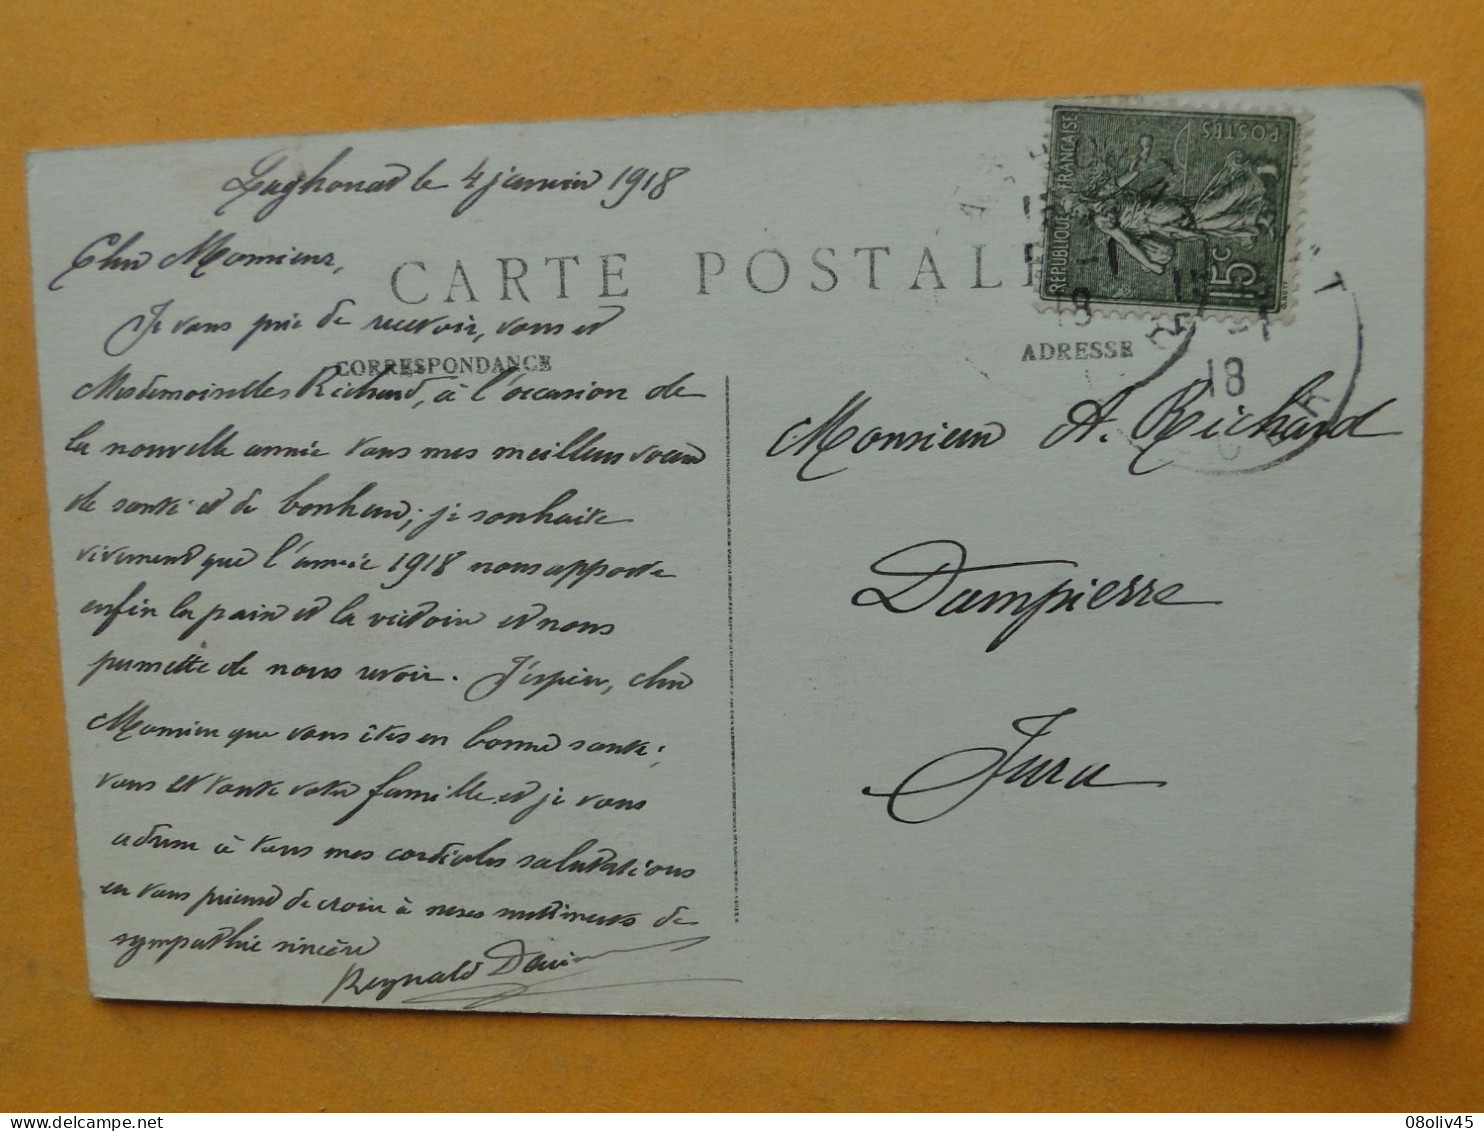 Laghouat le 4 janvier 1918
Cher Monsieur,
CARTE POSTALE
Je vous prie de recevoir, vous et
CORRESPONDANCE
Mesdemoiselles Richard, à l'occasion de
la nouvelle année tous mes meilleurs voeux
de santé et de bonheur; je souhaite
vivement que l'année 1918 nous apporte
enfin la paix et la victoire et nous
permette de nous revoir. J'espère, cher
Monsieur que vous êtes en bonne santé;
vous et toute votre famille et je vous
adresse à tous mes cordiales salutations
en vous priant de croire à mes sentiments de
sympathie sincère
Reynald
ADRESSE
Monsieur A. Richard
Dampierre
Jura
REPUBLIQUE FRANCAISE
POSTES
15c
18
08oliv45